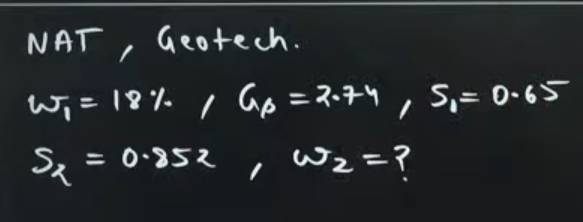 NAT, Geotech.
w₁ = 18%, Gₛ = 2.74, S₁ = 0.65
S₂ = 0.852, w₂ = ?